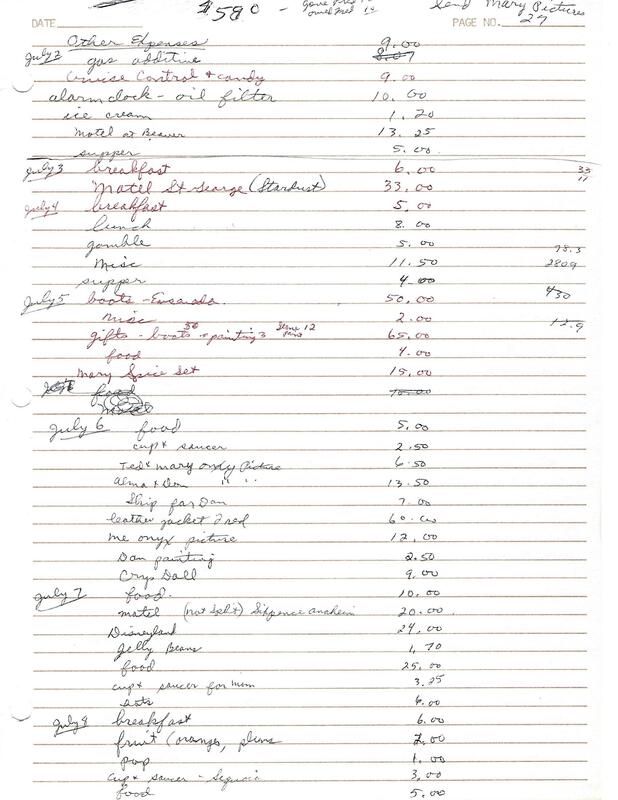 $580 - gave Fred
owed Fred 12
Send Mary Pictures
DATE PAGE NO. 27
Other Expenses 9.00
July 2 gas additive 8.07
Cruise Control & candy 9.00
alarm clock - oil filter 10.00
ice cream 1.20
Motel at Beaver 13.25
supper 5.00
July 3 breakfast 6.00 33
Motel St George (Stardust) 33.00 11
July 4 breakfast 5.00
lunch 8.00
gamble 5.00 78.3
Misc 11.50 2809
supper 4.00
July 5 boots - Ensenada 50.00 450
misc 2.00
gifts - boots 50 + painting 3 65.00 13.9
food 4.00
Mary Spice Set 15.00
food 10.00
Motel
July 6 food 5.00
cup & saucer 2.50
Ted & Mary onxy Picture 6.50
Alma & Don " " 13.50
Ship for Dan 7.00
leather jacket Fred 60.00
me onyx picture 12.00
Dan painting 2.50
Crys Doll 9.00
July 7 food. 10.00
motel (not Split) Sixpence Anaheim 20.00
Disneyland 24.00
Jelly Beans 1.70
food 25.00
cup & saucer for mom 3.25
6.00
July 8 breakfast 6.00
fruit (oranges, plums 2.00
pop 1.00
cup & saucer - Sequoia 3.00
food 5.00